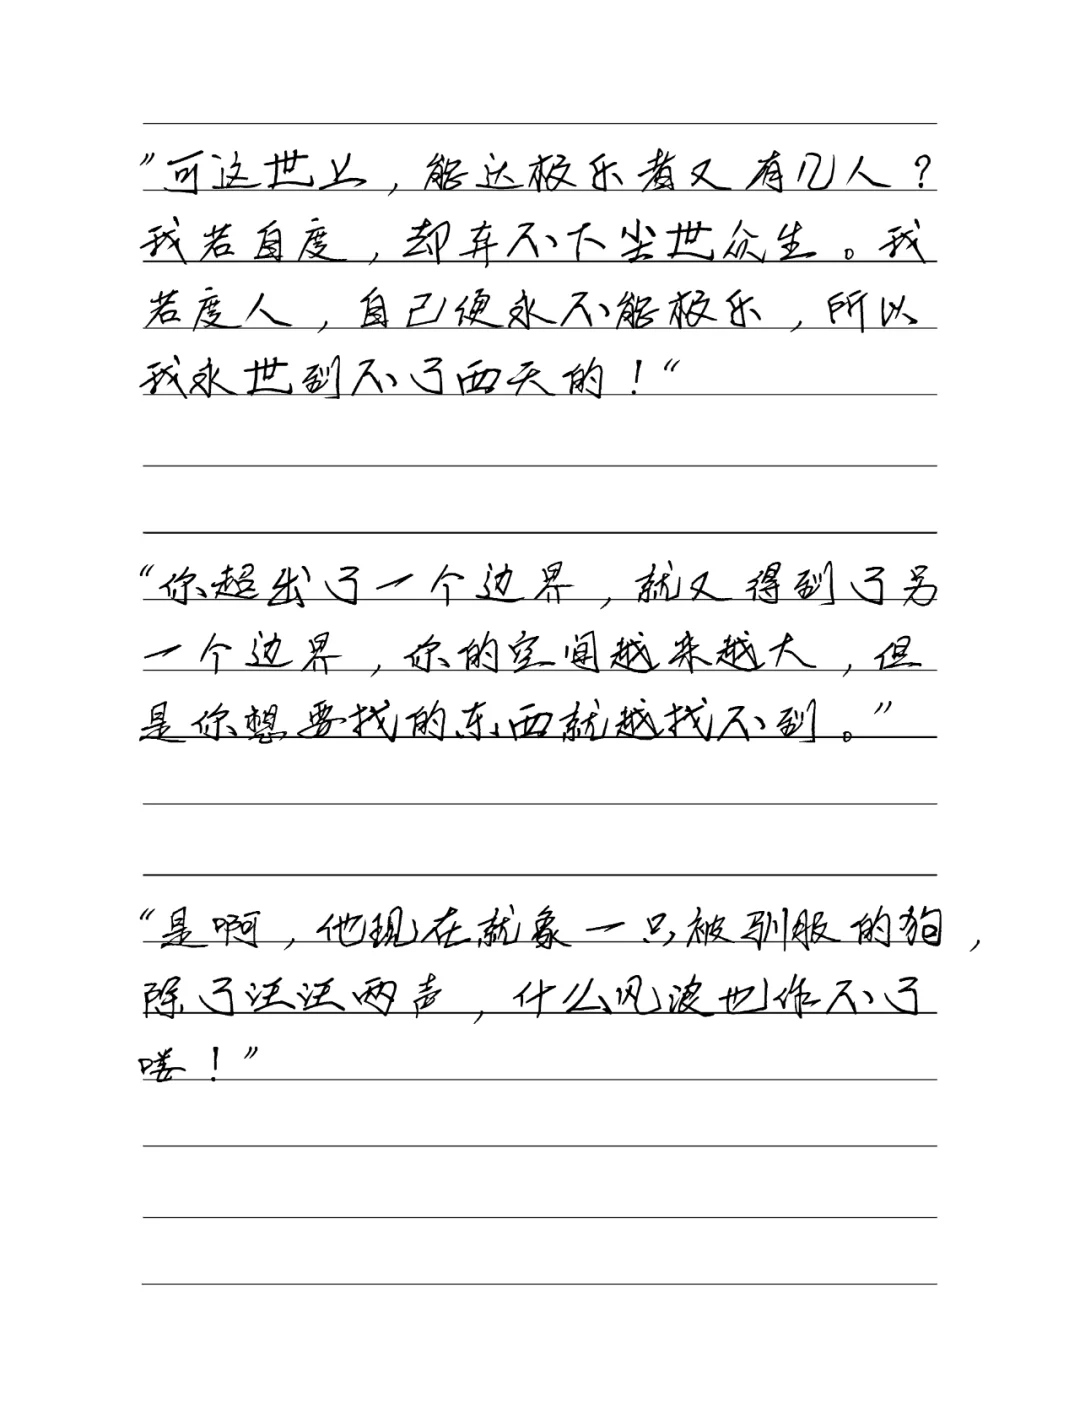 ”可这世上，能达极乐者又有几人？
我若自度，却弃不下尘世众生。我
若度人，自己便永不能极乐，所以
我永世到不了西天的！“
“你超出了一个边界，就又得到了另
一个边界，你的空间越来越大，但
是你想要找的东西就越找不到。”
“是啊，他现在就象一只被驯服的狗，
除了汪汪两声，什么风波也作不了
喽！”